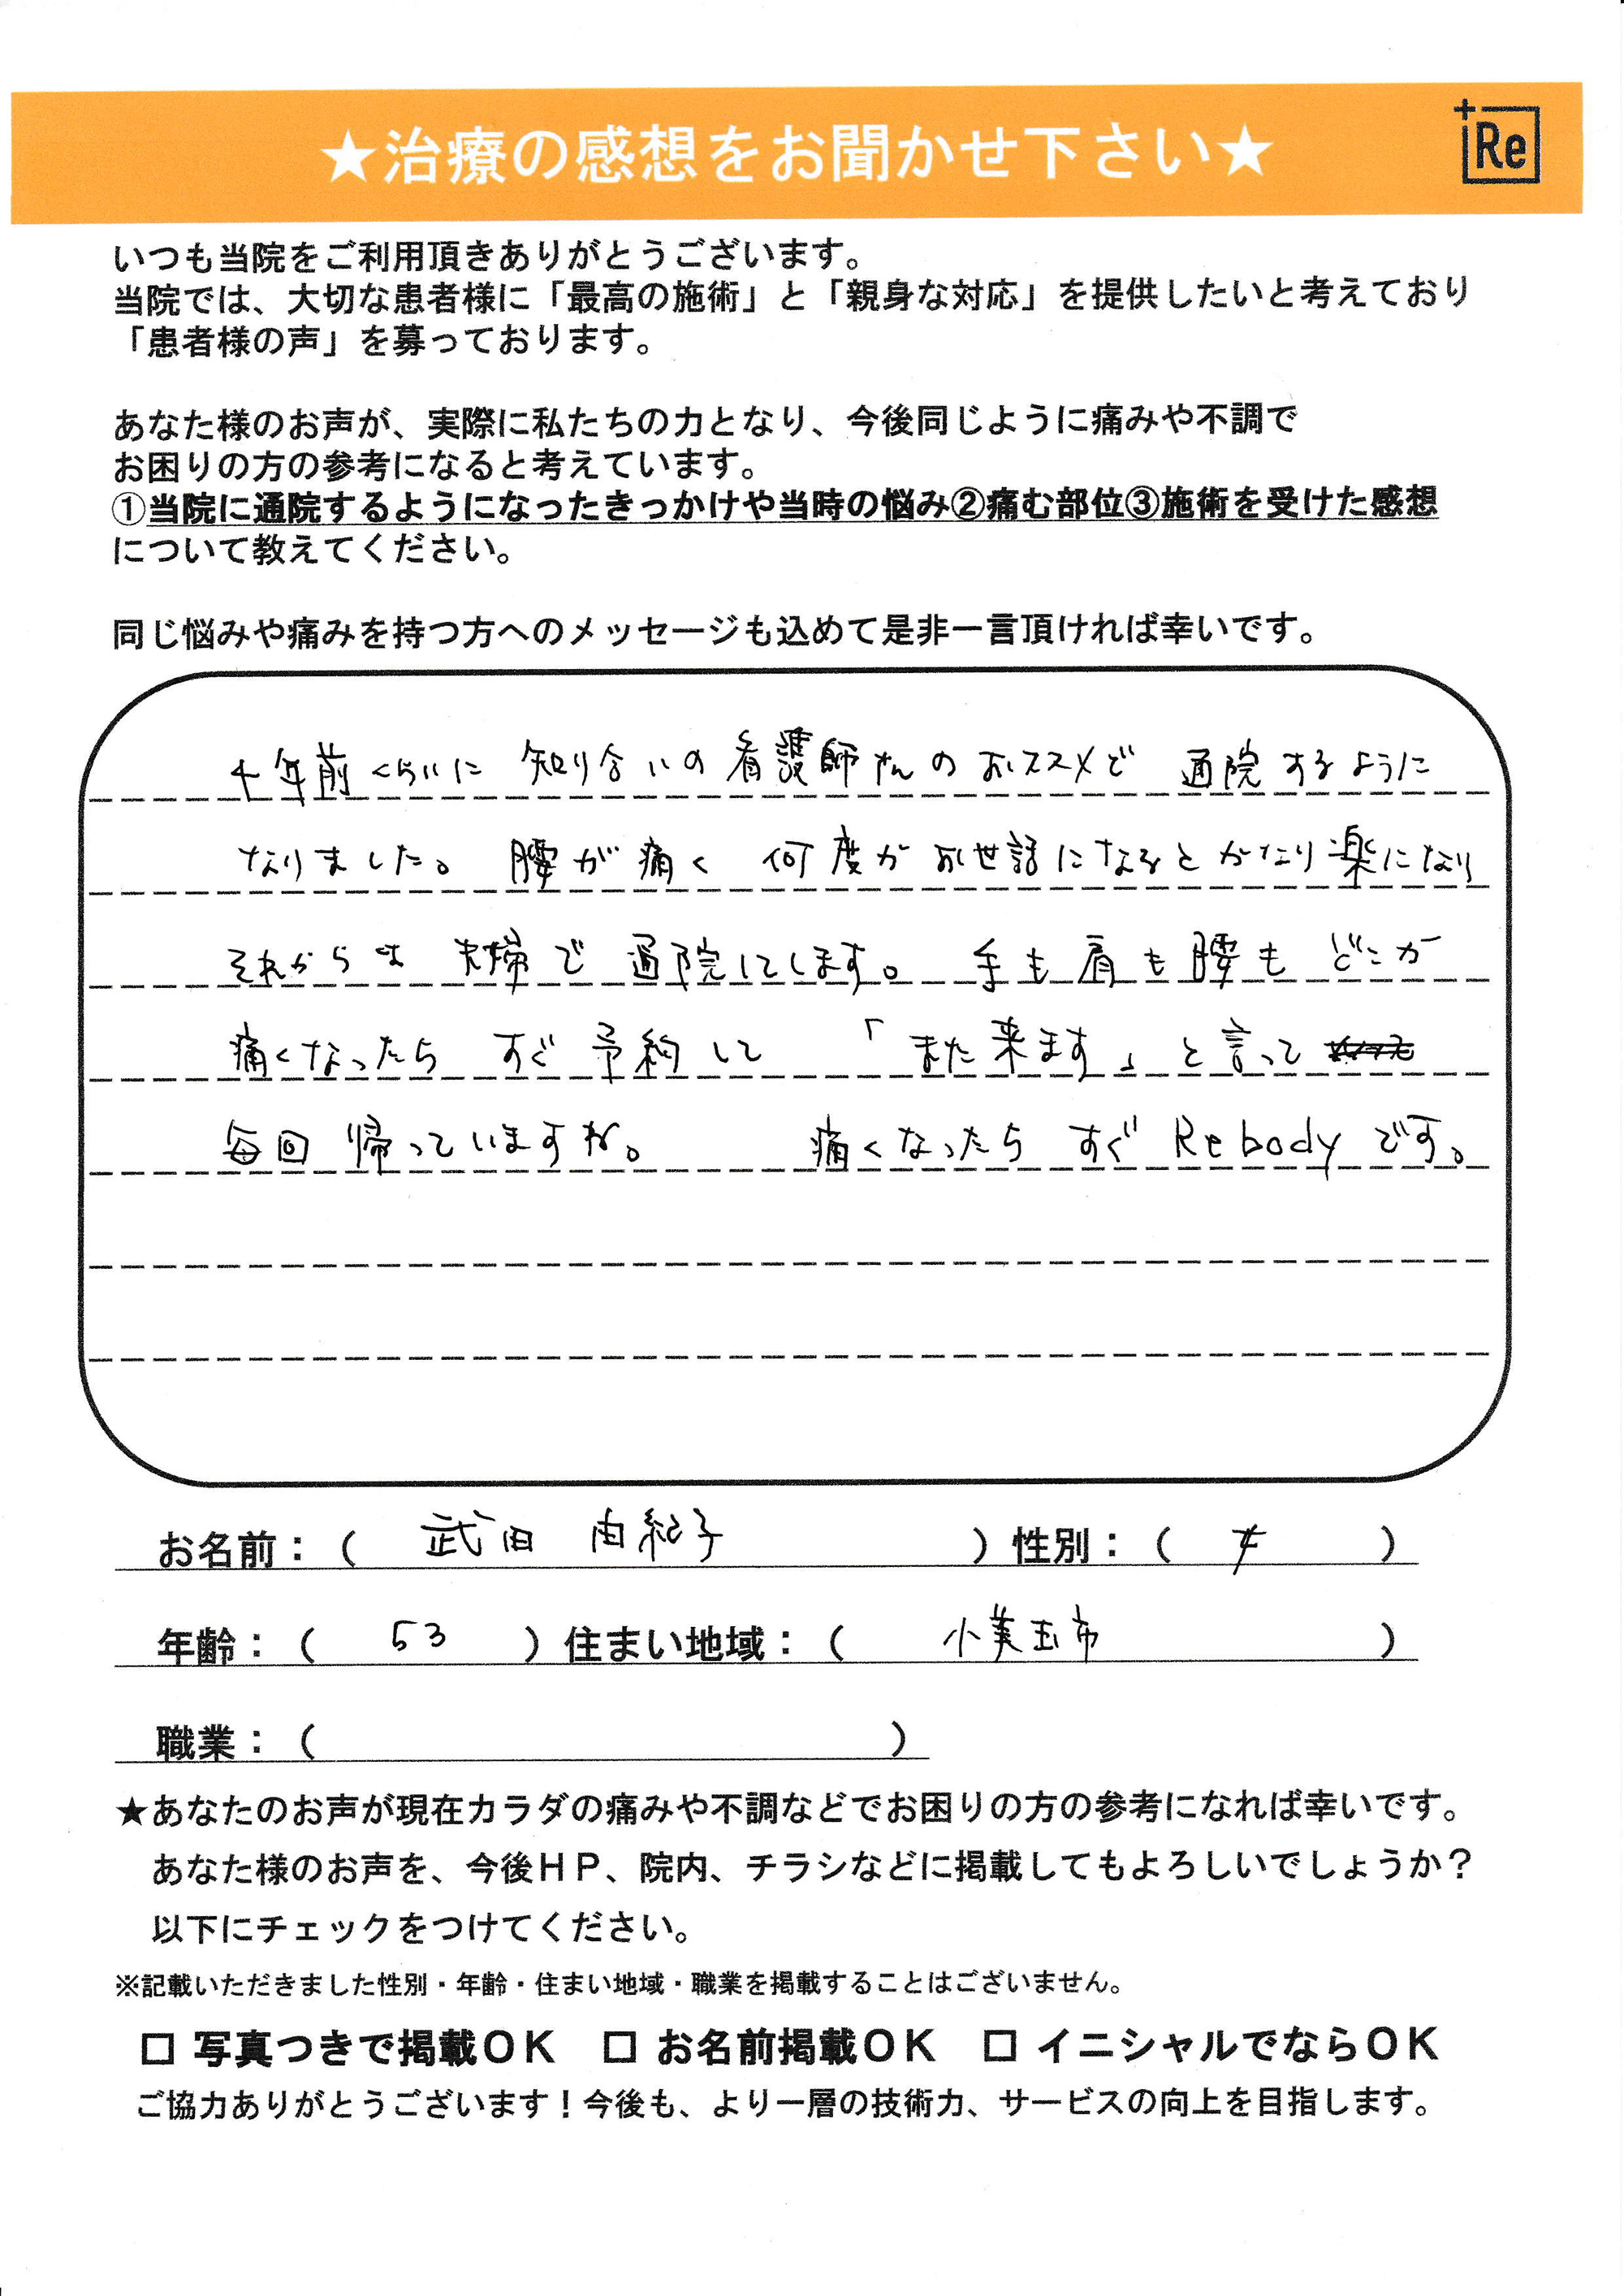 ★治療の感想をお聞かせ下さい★
Re
いつも当院をご利用頂きありがとうございます。
当院では、大切な患者様に「最高の施術」と「親身な対応」を提供したいと考えており
「患者様の声」を募っております。
あなた様のお声が、実際に私たちの力となり、今後同じように痛みや不調で
お困りの方の参考になると考えています。
①当院に通院するようになったきっかけや当時の悩み②痛む部位③施術を受けた感想
について教えてください。
同じ悩みや痛みを持つ方へのメッセージも込めて是非一言頂ければ幸いです。
十年前くらいに 知り合いの看護師さんのおススメで 通院するように
なりました。 腰が痛く 何度かお世話になるとかなり楽になり
それからは 夫婦で 通院してします。 手も肩も腰も どこか
痛くなったら すぐ予約して 「また来ます」と言って
毎回 帰っていますね。 痛くなったら すぐ Rebodyです。
お名前：（ 武田 由紀子 ）性別：（ 女 ）
年齢：（ 53 ）住まい地域：（ 小美玉市 ）
職業：（ ）
★あなたのお声が現在カラダの痛みや不調などでお困りの方の参考になれば幸いです。
あなた様のお声を、今後ＨＰ、院内、チラシなどに掲載してもよろしいでしょうか？
以下にチェックをつけてください。
※記載いただきました性別・年齢・住まい地域・職業を掲載することはございません。
□ 写真つきで掲載ＯＫ □ お名前掲載ＯＫ □ イニシャルでならＯＫ
ご協力ありがとうございます！今後も、より一層の技術力、サービスの向上を目指します。